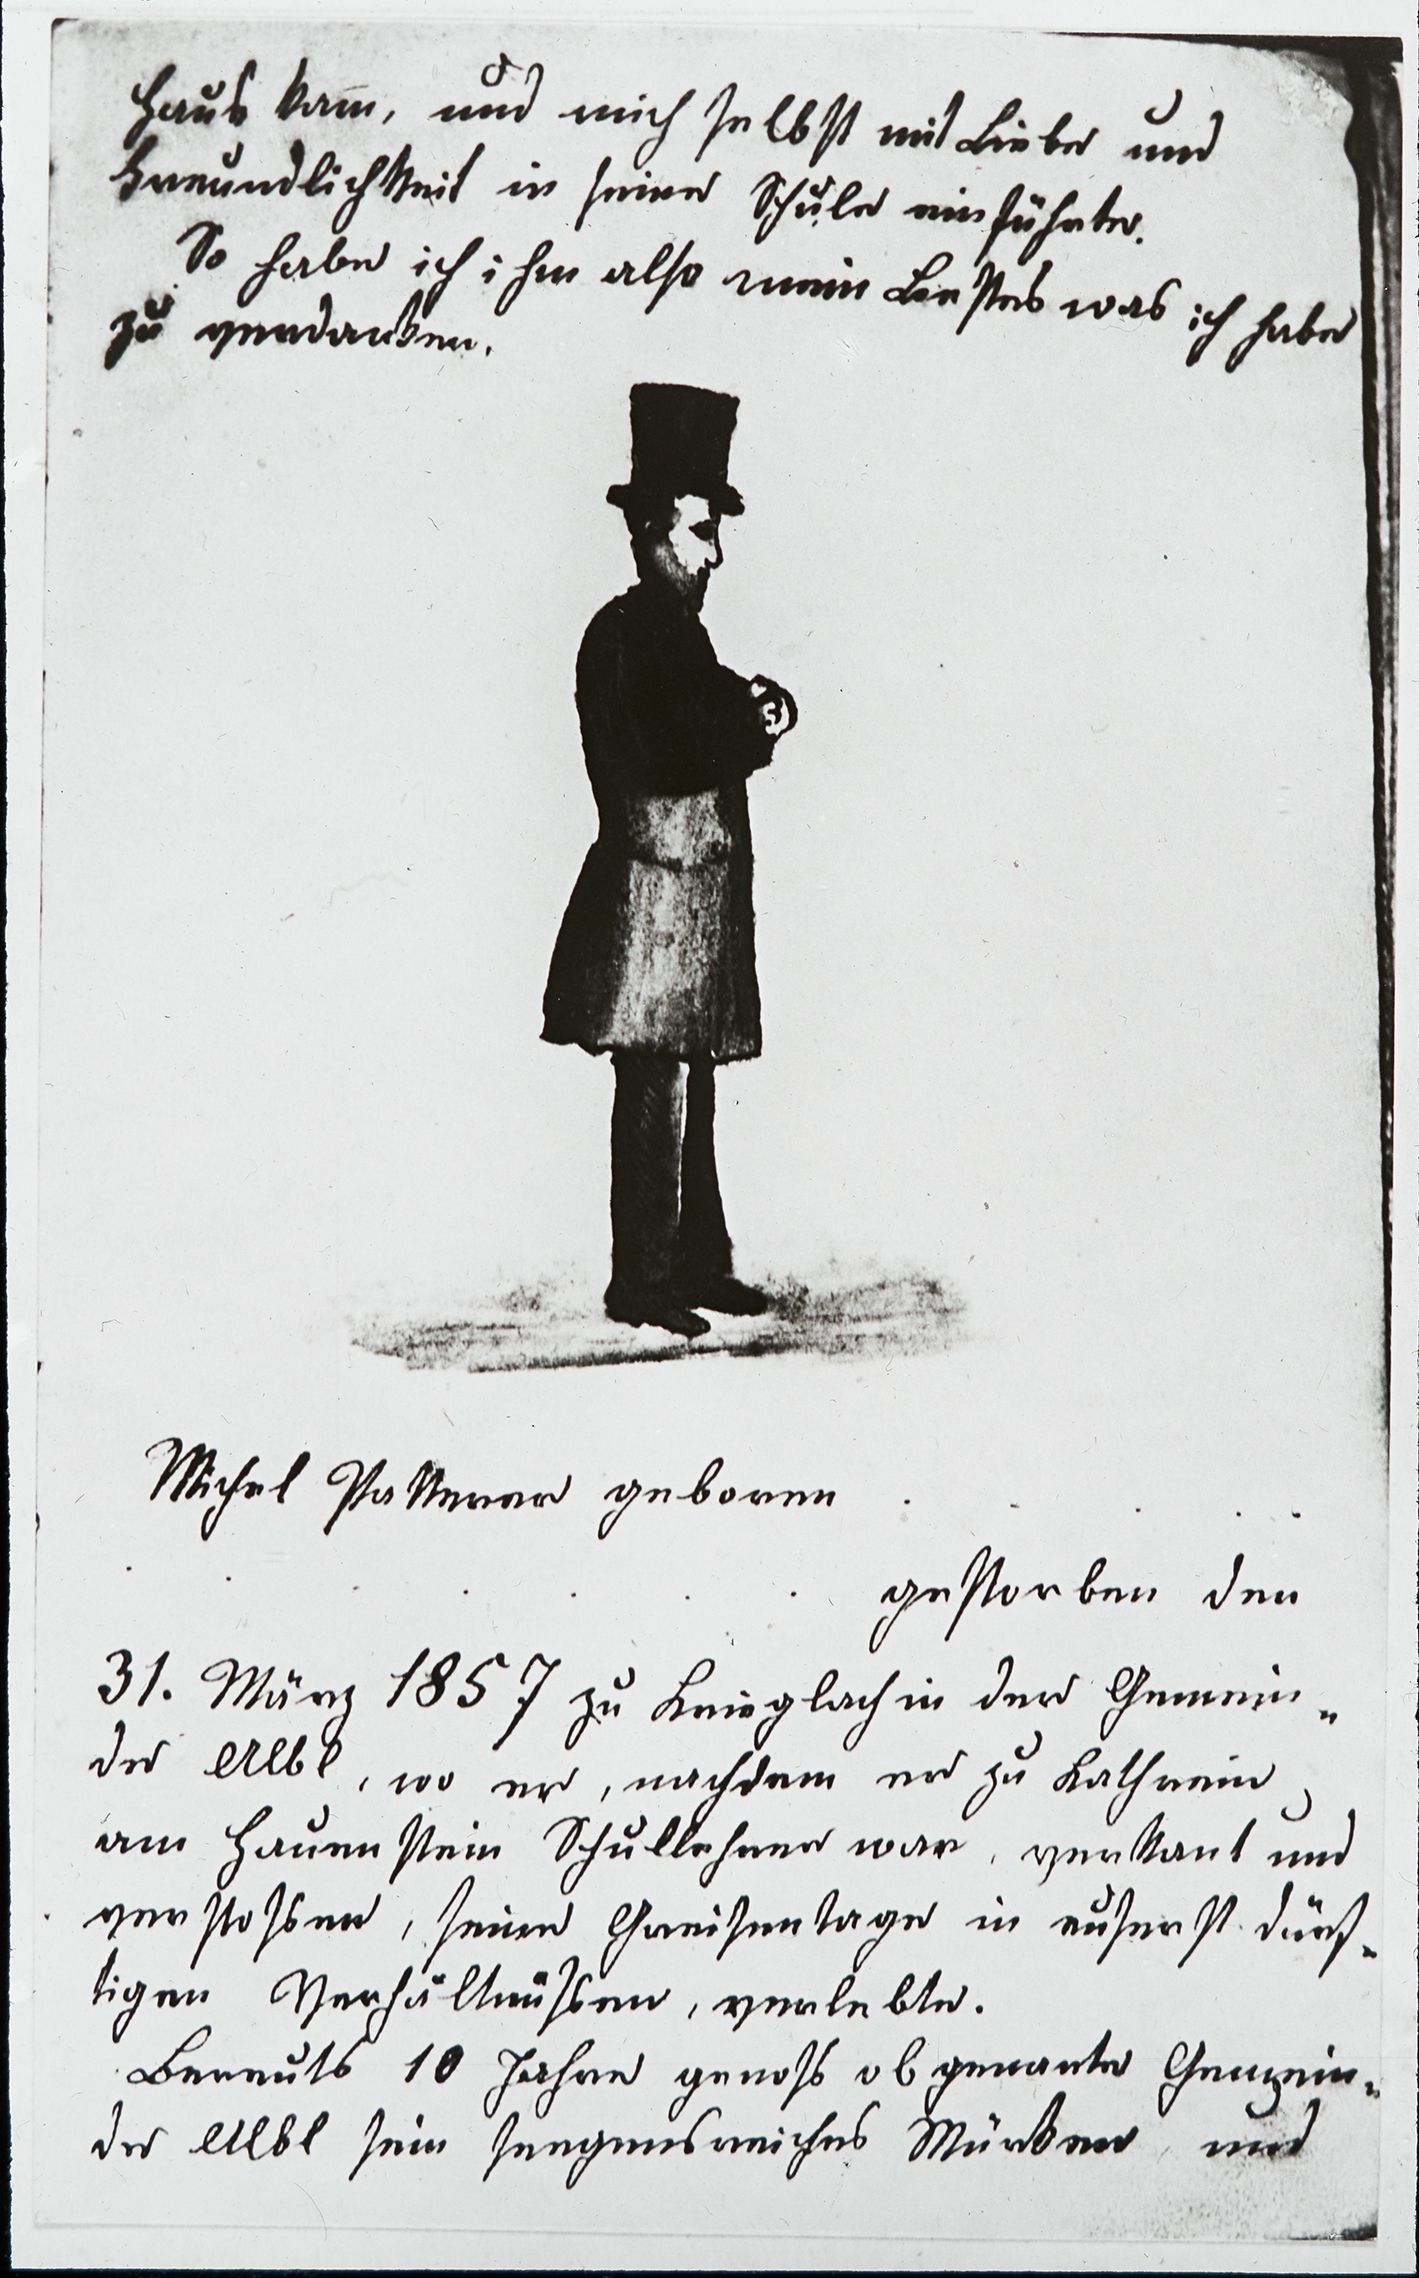 Haus kam̅, und mich selbst mit Liebe und
Freundlichkeit in seine Schule einführte.
So habe ich ihm also mein Bestes was ich habe
zu verdanken.
Michel Patterer geboren . . . . .
. . . . . . . gestorben den
31. März 1857 zu Krieglach in der Gemein„
de Albl, wo er, nachdem er zu Kathrein
am Hauenstein Schullehrer war, verkant und
verstossen, seine Greisentage in euserst dürf„
tigen Verhältnüssen, verlebte.
Bereuts 10 Jahre genoss obgenante Gemein„
de Albl sein seegensreiches Würken und